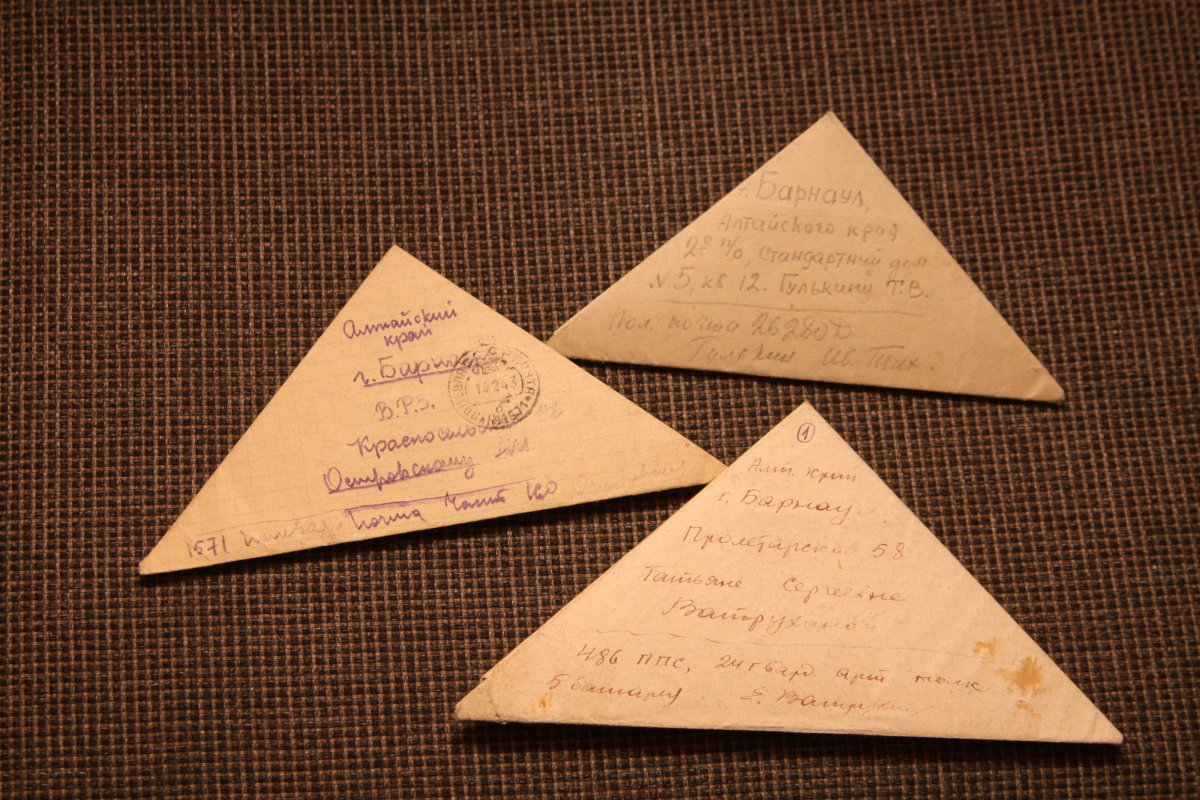 Барнаул,
Алтайского края
2е п/о, Стандартный дом
№ 5, кв 12. Гулькину Т.В.
Пол. почта 26280
Гулькин Ив. Тих.
Алтайский
край
г. Барнаул
В.Р.Э.
Островскому
1571 Полевая Почта Часть 160
14 2 43
1
Алт. край
г. Барнау
Пролетарска 58
Татьяне Сергеевне
Ватрухиной
486 ППС, 24 гвард арт полк
5 батарея Е. Ватрухин